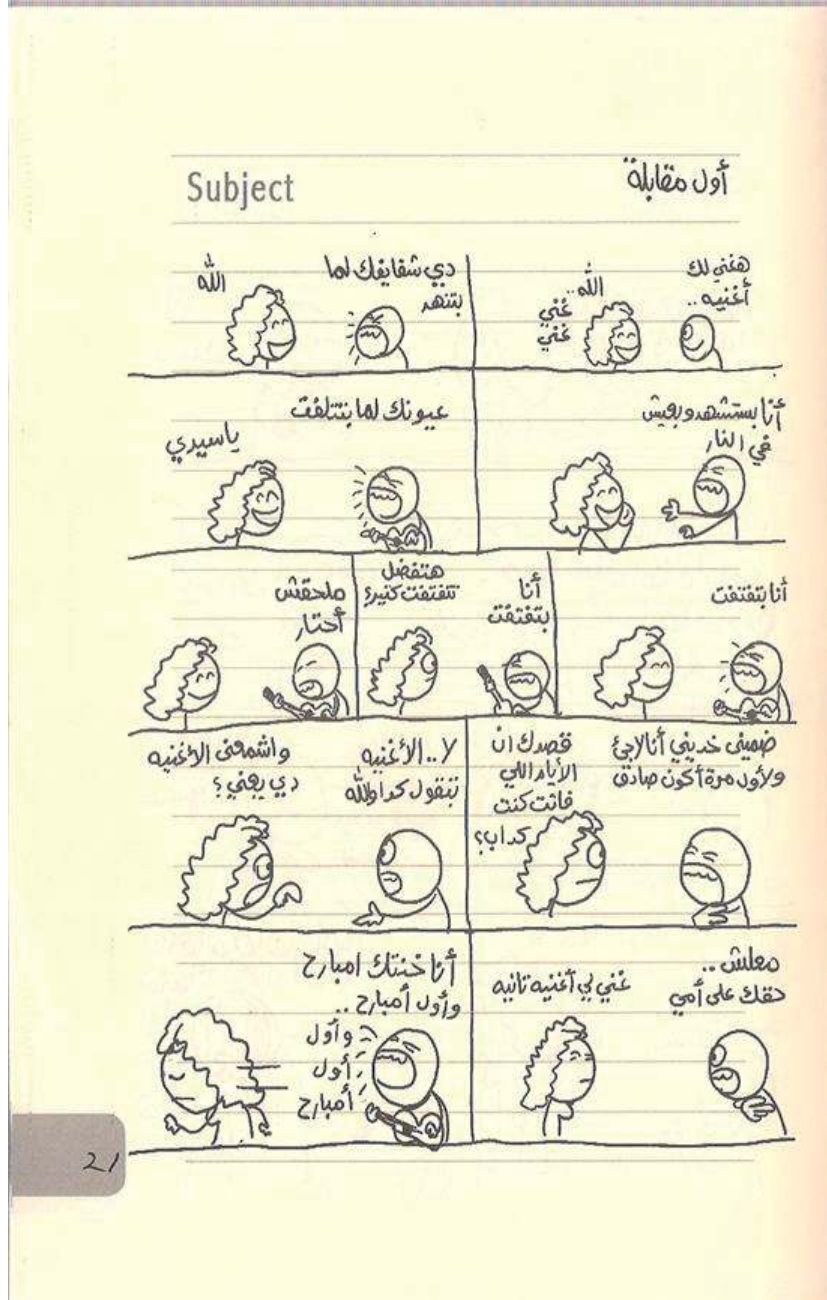 Subject
أول مقابلة
هغني لك
أغنيه ..
الله ..
غني
غني
دي شفايفك لما
بتنهد
الله
أنا بستشهد وبعيش
في النار
عيونك لما بتتلفت
ياسيدي
أنا بتفتفت
أنا
بتفتفت
هتفضل
تتفتفت كتير؟
ملحقش
أحتار
ضميني خديني أنا لاجئ
ولأول مرة أكون صادق
قصدك ان
الأيام اللي
فاتت كنت
كداب؟
لا .. الأغنيه
بتقول كدا والله
واشمعنى الأغنيه
دي يعني؟
معلش ..
حقك على أمي
غني لي أغنيه تانيه
أنا خنتك امبارح
وأول أمبارح ..
وأول
أول
أمبارح
21